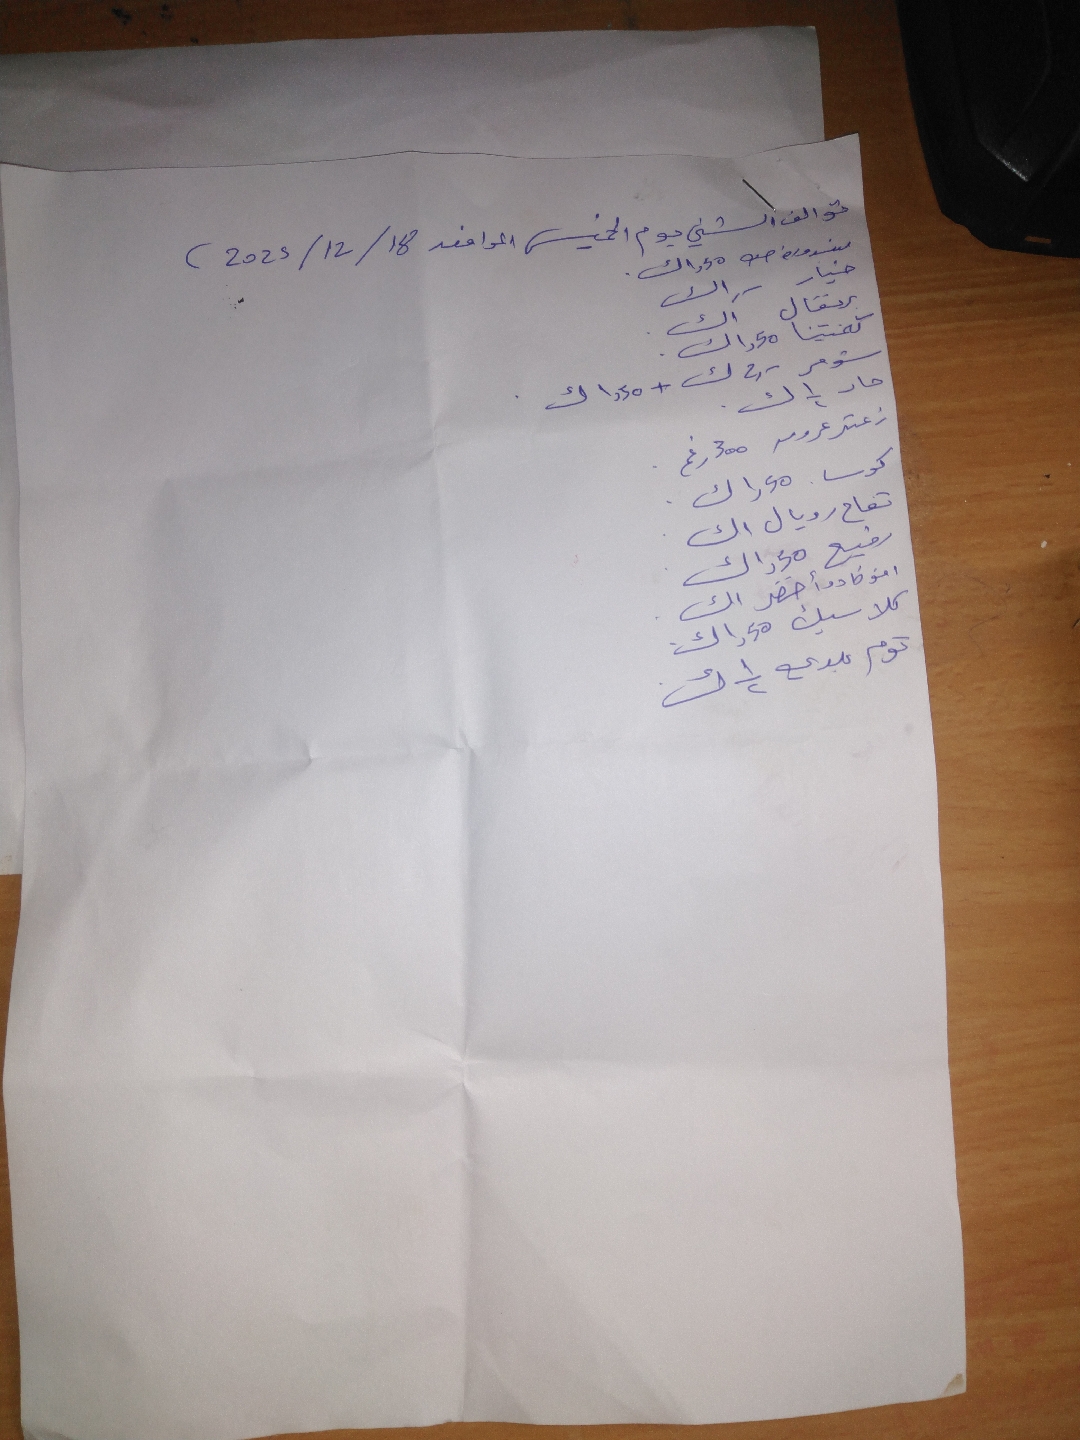 توالف الشني يوم الخميس الموافق 18/12/2025 )
بندورة 1,50 ك.
خيار 1,- ك
برتقال 1 ك.
كلمنتينا 1,50 ك.
شومر 2,- ك + 1,50 ك.
حار ½ ك.
زعتر عروق 300,غم.
كوسا 1,50 ك.
تفاح رويال 1 ك.
رفيع 1,50 ك.
افوكادو أخضر 1 ك.
كلاسيك 1,50 ك.
توم بلدي ½ ك.